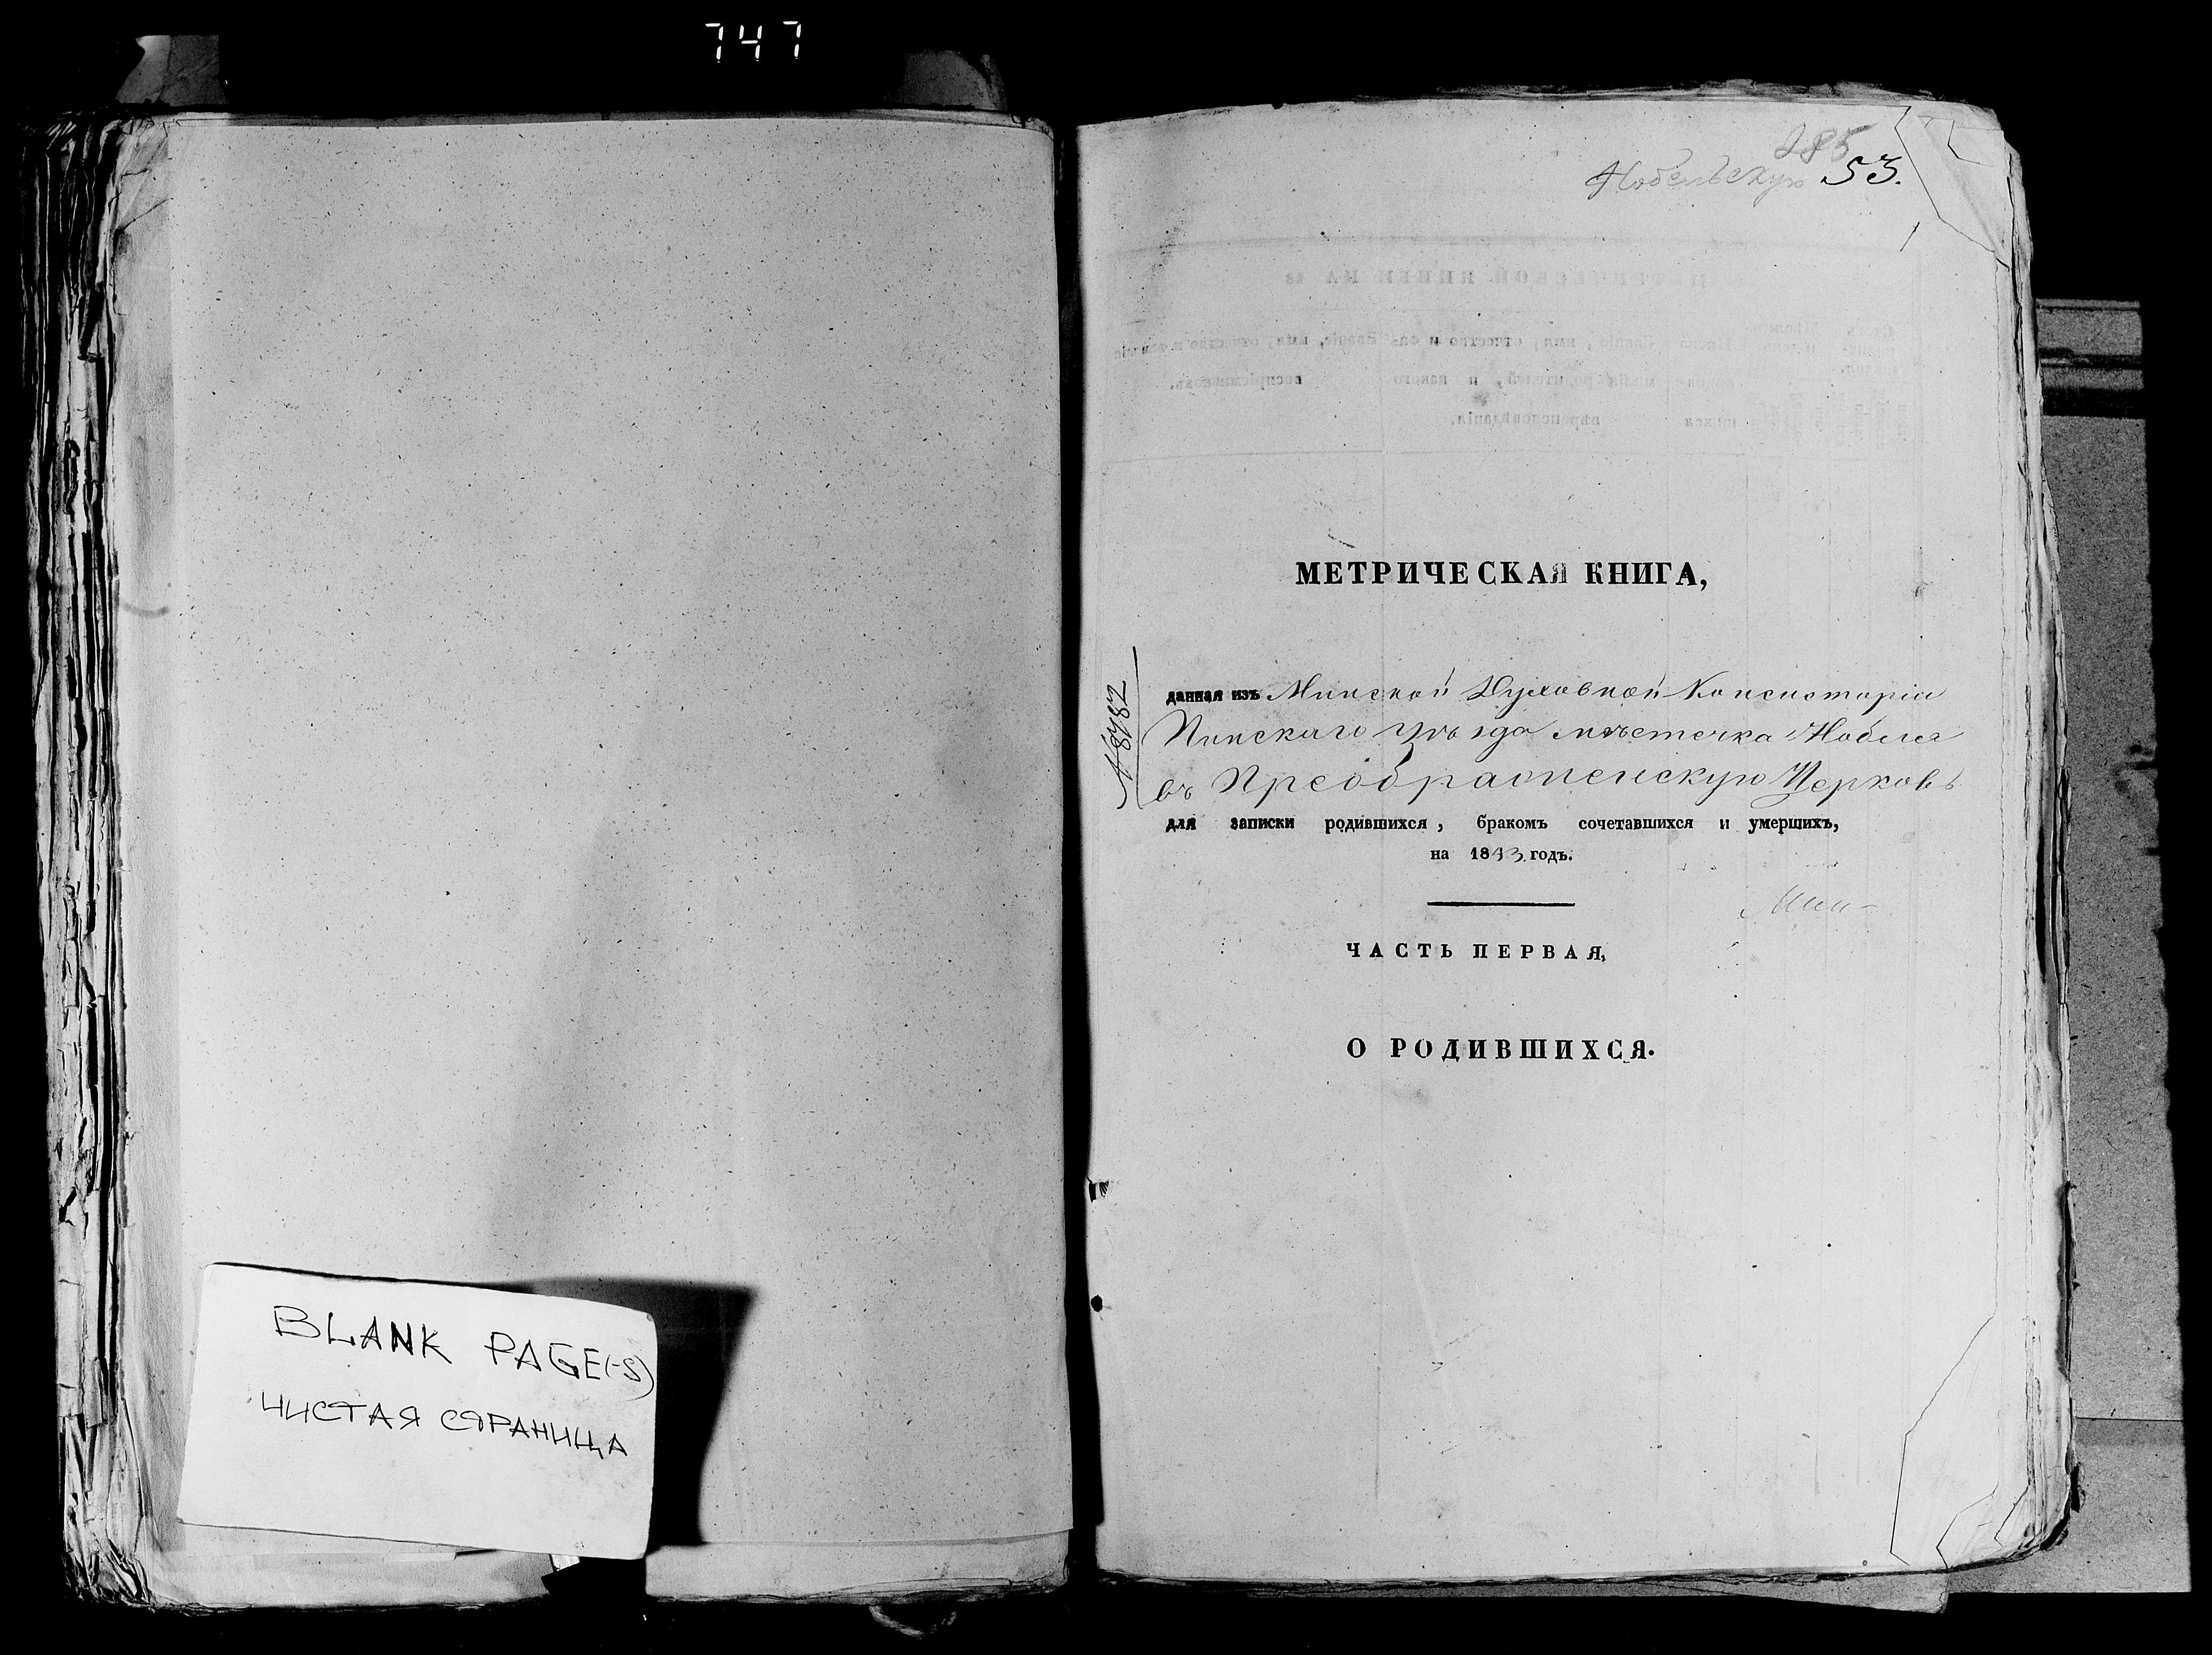 747
BLANK PAGE(-S)
ЧИСТАЯ СТРАНИЦА
285
Нобельскую 53.
МЕТРИЧЕСКАЯ КНИГА,
данная изъ Минской Духовной Консисторіи
Пинскаго уѣзда мѣстечка Нобеля
въ Преображенскую Церковь
для записки родившихся, бракомъ сочетавшихся и умершихъ,
на 1843 годъ.
Мин-
ЧАСТЬ ПЕРВАЯ,
О РОДИВШИХСЯ.